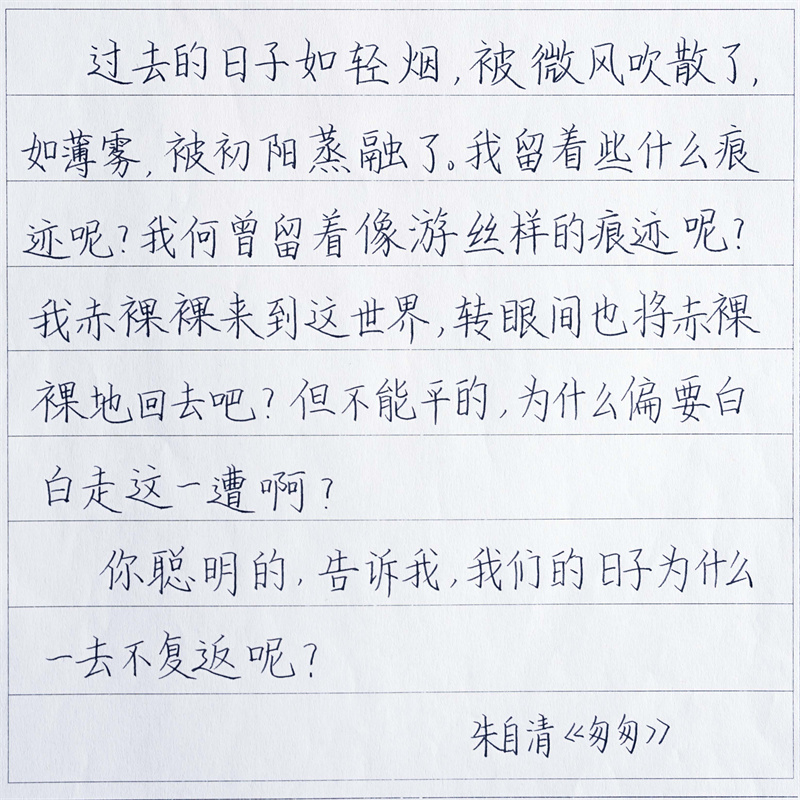 过去的日子如轻烟,被微风吹散了,
如薄雾,被初阳蒸融了。我留着些什么痕
迹呢?我何曾留着像游丝样的痕迹呢?
我赤裸裸来到这世界,转眼间也将赤裸
裸地回去吧?但不能平的,为什么偏要白
白走这一遭啊?
你聪明的,告诉我,我们的日子为什么
一去不复返呢?
朱自清《匆匆》